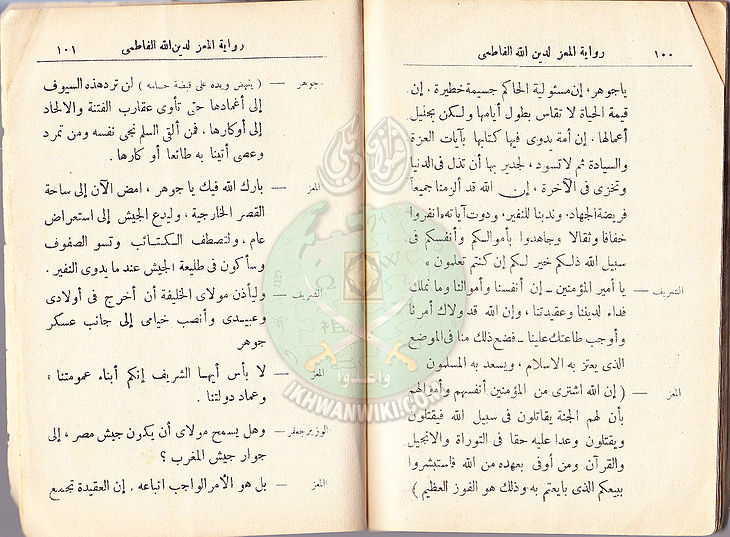 ١٠٠ رواية المعز لدين الله الفاطمى
ياجوهر، إن مسئولية الحاكم جسيمة خطيرة . إن
قيمة الحياة لا تقاس بطول أيامها ولكن بجليل
أعمالها . إن أمة يدوى فيها كتابها بآيات العزة
والسيادة ثم لا تسود، لجدير بها أن تذل فى الدنيا
وتخزى فى الآخرة . إن الله قد ألزمنا جميعاً
فريضة الجهاد، وندبنا للنفير، ودوت آياته «انفروا
خفافا وثقالا وجاهدوا بأموالكم وأنفسكم فى
سبيل الله ذلكم خير لكم إن كنتم تعلمون»
الشريف — يا أمير المؤمنين – إن أنفسنا وأموالنا وما نملك
فداء لديننا وعقيدتنا، وإن الله قد ولاك أمرنا
وأوجب طاعتك علينا – فضع ذلك منا فى الموضع
الذى يعتز به الاسلام، ويسعد به المسلمون
المعز — ( إن الله اشترى من المؤمنين أنفسهم وأموالهم
بأن لهم الجنة يقاتلون فى سبيل الله فيقتلون
ويقتلون وعدا عليه حقا فى التوراة والانجيل
والقرآن ومن أوفى بعهده من الله فاستبشروا
ببيعكم الذى بايعتم به وذلك هو الفوز العظيم )
رواية المعز لدين الله الفاطمى ١٠١
جوهر — ( ينهض ويده على قبضة حسامه ) لن ترد هذه السيوف
إلى أغمادها حتى تأوى عقارب الفتنة والالحاد
إلى أوكارها . فمن ألقى السلم نجى نفسه ومن تمرد
وعصى أتينا به طائعا أو كارها .
المعز — بارك الله فيك يا جوهر ، امض الآن إلى ساحة
القصر الخارجية ، وليدع الجيش إلى استعراض
عام ، ولتصطف الكتائب وتسو الصفوف
وسأكون فى طليعة الجيش عندما يدوى النفير .
الشريف — وليأذن مولاى الخليفة أن أخرج فى أولادى
وعبيدى وأنصب خيامى إلى جانب عسكر
جوهر
المعز — لا بأس أيها الشريف إنكم أبناء عمومتنا ،
وعماد دولتنا .
الوزير جعفر — وهل يسمح مولاى أن يكون جيش مصر ، إلى
جوار جيش المغرب ؟
المعز — بل هو الأمر الواجب اتباعه . إن العقيدة تجمع
وأعدوا
IKHWANWIKI.COM